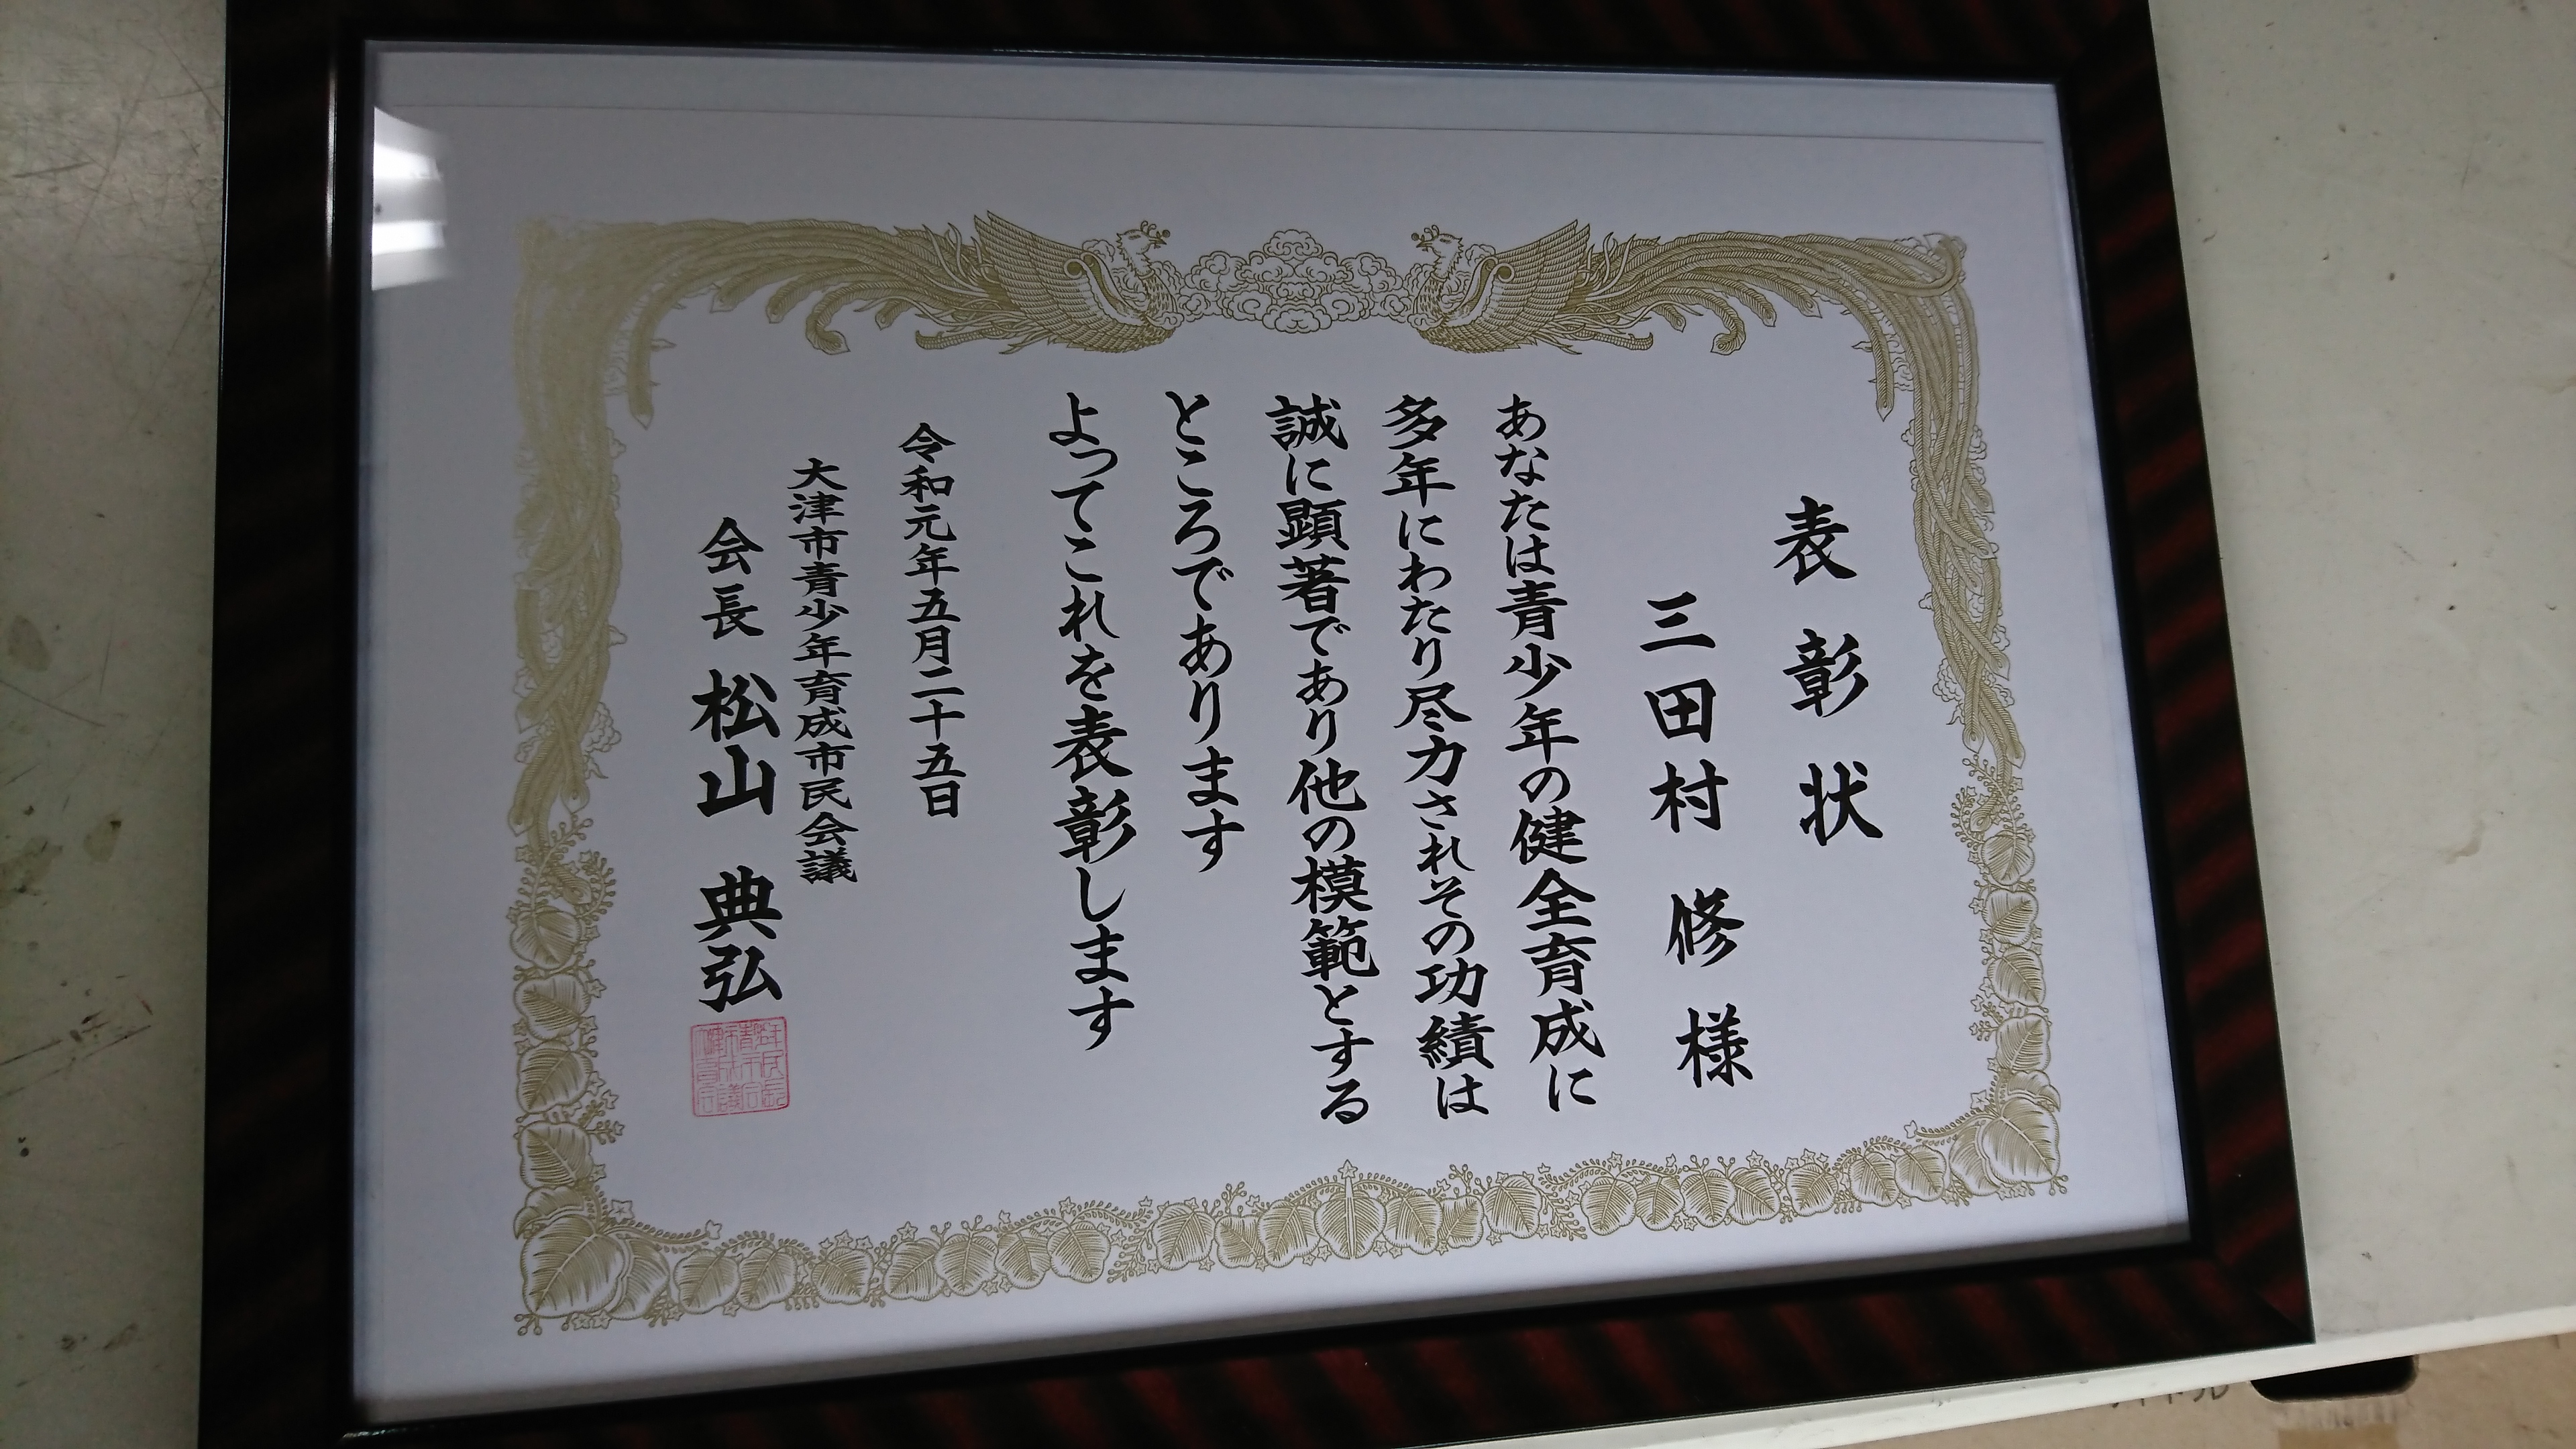 表彰状
三田村 修 様
あなたは青少年の健全育成に
多年にわたり尽力されその功績は
誠に顕著であり他の模範とする
ところであります
よってこれを表彰します
令和元年五月二十五日
大津市青少年育成市民会議
会長 松山 典弘